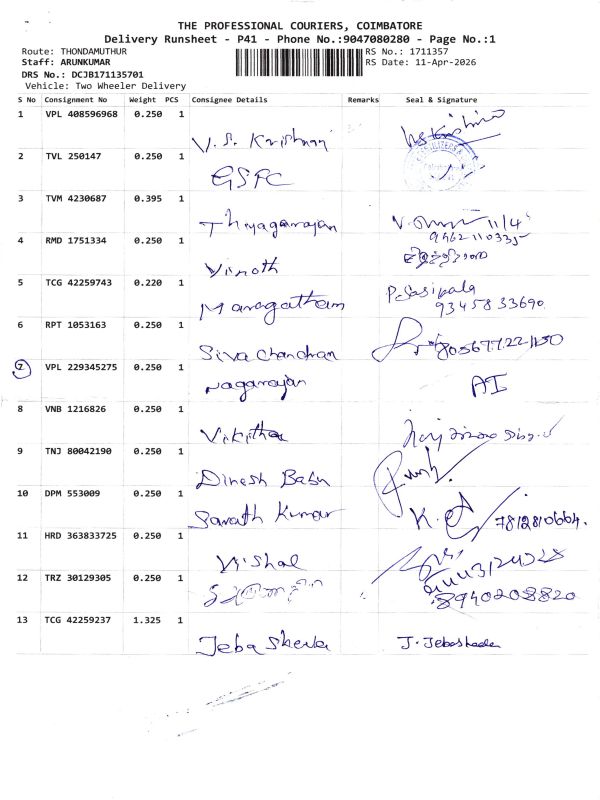 THE PROFESSIONAL COURIERS, COIMBATORE
Delivery Runsheet - P41 - Phone No.:9047080280 - Page No.:1
Route: THONDAMUTHUR RS No.: 1711357
Staff: ARUNKUMAR RS Date: 11-Apr-2026
DRS No.: DCJB171135701
Vehicle: Two Wheeler Delivery
S No Consignment No Weight PCS Consignee Details Remarks Seal & Signature
1 VPL 408596968 0.250 1
V. S. Krishnan
2 TVL 250147 0.250 1
GSFC
3 TVM 4230687 0.395 1
Thiyagarajan 11/4
4 RMD 1751334 0.250 1
Vinoth
5 TCG 42259743 0.220 1 P. Sasipala
Maragatham 9345833690
6 RPT 1053163 0.250 1
Siva Chandran
7 VPL 229345275 0.250 1
Nagarajan AI
8 VNB 1216826 0.250 1
9 TNJ 80042190 0.250 1
Dinesh Babu
10 DPM 553009 0.250 1
Sarath Kumar 7812810664.
11 HRD 363833725 0.250 1
Vishal
12 TRZ 30129305 0.250 1
8940208820
13 TCG 42259237 1.325 1
Jeba